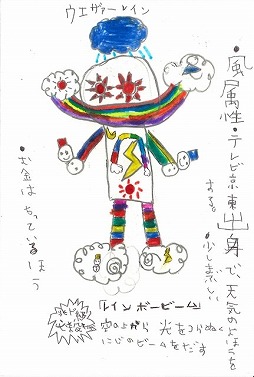 ウエザーレイン
・風属性・テレビ京東出身で、天気のよほうを
する。
・少し悪い。
・お金はもっているほう
必殺
「レインボービーム」
空の上から光をつらぬく
にじのビームをだす